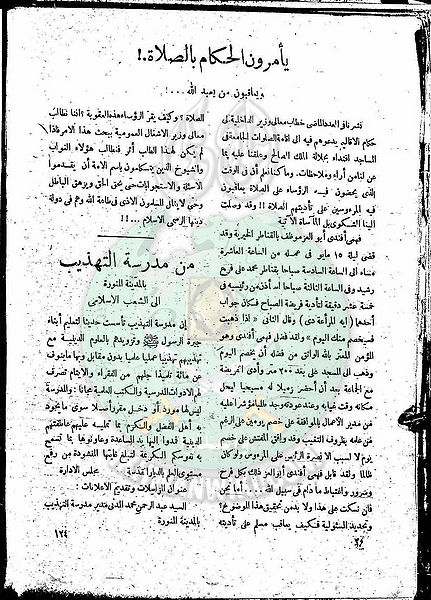 يأمرون الحكام بالصلاة.!
ويعاقبون من يعبد الله ...!
نشرنا في العدد الماضي خطاب معالي وزير الداخلية الى
حكام الاقاليم يدعوهم فيه الى اقامة الصلوات الجامعة في
المساجد اقتداء بجلالة الملك الصالح وعلقنا عليه بما
عن لنا من آراء وملاحظات. وما كنا نعلم أن في الوقت
الذي يحضون فيه الرؤساء على الصلاة يعاقبون
فيه المرءوسين على تأديتهم الصلاة !! وقد وصلت
الينا الشكوى بل المأساة الآتية
فهمي أفندي أبو العز موظف بالقناطر الخيرية وقد
قضى ليلة ١٥ مايو في عمله من الساعة العاشرة
مساء الى الساعة السادسة صباحا بقناطر محمد علي فرع
رشيد وفي الساعة الثالثة صباحا استأذن من رئيسه في
خمسة عشر دقيقة لتأدية فريضة الصباح فكان جواب
أحدهما (ايه المرأعة دي) وقال الثاني «اذا ذهبت
فسيخصم منك اليوم» ولقد فضل فهمي أفندي وهو
المؤمن المعتز بالله الواثق من فضله أن يخصم اليوم
وذهب الى المسجد على بعد ٢٠٠ متر وأدى الفريضة
مع الجماعة بعد أن أحضر زميلا له مسيحيا ليحل
مكانه وقت غيابه وعند عودته وجد طلبا مؤشرا عليه
من مدير الاعمال بالموافقة على خصم يومين على الرغم
من علمه بظروف التغيب وقد وافق المفتش على خصم
يوم لا لسبب الا نصرة الرئيس على المرءوس ولو كان
ظالما ولقد قابل فهمي أفندي أبو العز ذلك بكل فرح
وسرور واغتباط ما دام في سبيل الله ... أما نحن
فان سكت على هذا ولا بد من تحقيق هذا الموضوع؟
وتحديد المسئولية فكيف يعاقب مسلم على تأديته
الصلاة؟ وكيف يقر الرؤساء هذه العقوبة؟ اننا نطالب
معالي وزير الاشغال العمومية ببحث هذا الامر فاذا
لم يكن لهذا الطلب أثر فنطالب هؤلاء النواب
والشيوخ الذين يتكلمون باسم الامة أن يتقدموا
بالاسئلة والاستجوابات حتى يحق الحق ويزهق الباطل
وحتى لا ينال المسلمون الاذى في طاعة الله وهم في دولة
دينها الرسمي الاسلام ... !!
من مدرسة التهذيب
بالمدينة المنورة
الى الشعب الاسلامي
إن مدرسة التهذيب تأسست حديثا لتعليم أبناء
جيرة الرسول ﷺ وتزويدهم بالعلوم الدينية مع
تهذيبهم تهذيبا عمليا علميا بدون مقابل وبها ما ينوف
عن مائة تلميذ جلهم من الفقراء والايتام تصرف
لهم الادوات المدرسية والكتب العلمية مجانا: والمدرسة
ليس لها مورد أو دخل مقرر أصلا سوى ما يجود
به أهل الفضل والكرم بما تمليه عليهم عاطفتهم
الدينية فمدوا إليها يد المساعدة وعاونوها بما تسمح
به نفوسكم الكريمة لتبلغ غايتها المنشودة من رفع
مستوى العلم بالديار المقدسة
مجلس الادارة
عنوان المراسلات وتقديم الاعانات:
السيد عبد الرحمن محمد المدني مدير مدرسة التهذيب
بالمدينة المنورة
١٢٤